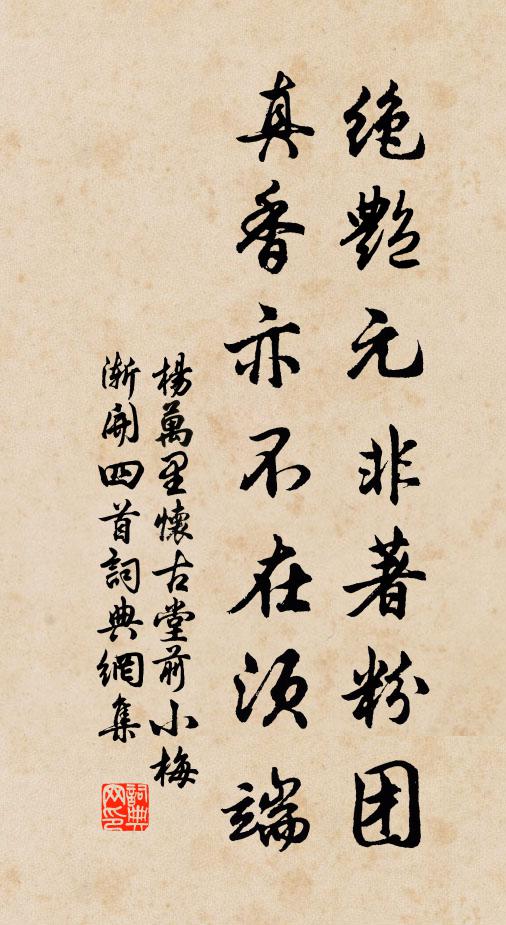 绝艳元非著粉团
真香亦不在须端
楊萬里懷古堂前小梅
漸開四首詞典網集
詞典网印